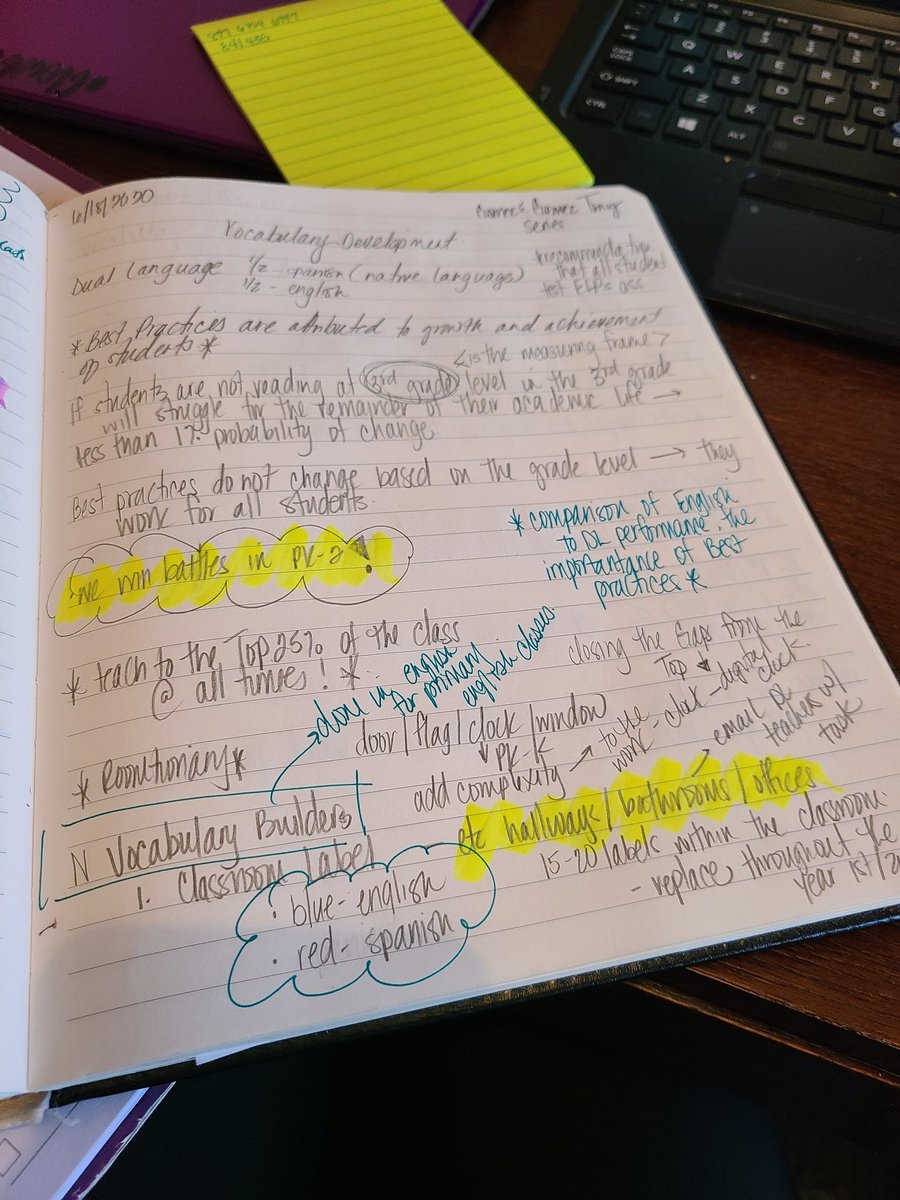 6/18/2020
Gomez & Gomez
series
Vocabulary Development
Dual Language 1/2 - spanish (native language)
1/2 - english
recommendation
that all student
test
*Best Practices are attributed to growth and achievement
of students*
<is the measuring frame>
If students are not reading at 3rd grade level in the 3rd grade
will struggle for the remainder of their academic life →
less than 17% probability of change
Best practices do not change based on the grade level → they
work for all students.
*comparison of English
to DL performance, the
importantance of Best
practices*
we win battles in PK-2!
*teach to the Top 25% of the class
@ all times!*
closing the Gaps from the
Top
done in english
for primary
english classes
*Roomtionary*
door/flag/clock/window
PK-K
add complexity → to the
work - clock - digital
clock.
→ email DL
teachers w/
task
N Vocabulary Builders
1. Classroom Label
· blue - english
· red - spanish
etc hallways/bathrooms/offices
15-20 labels within the classroom.
- replace throughout the
year 1st/2n
CTRL
SHIFT
ALT
Q
W
E
R
T
A
S
D
F
G
Z
X
C
V